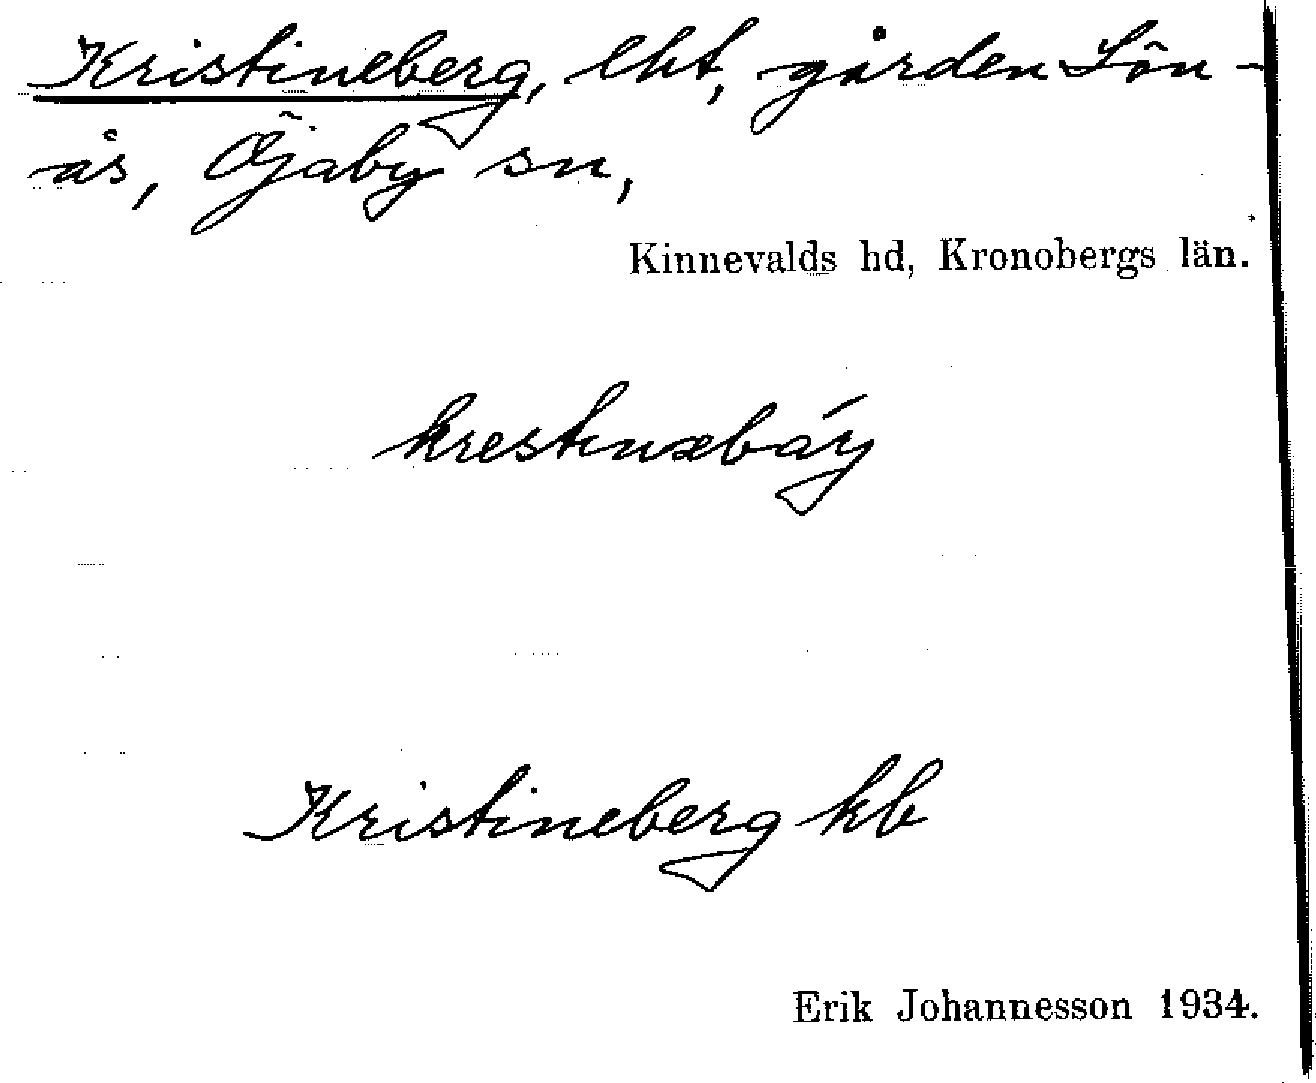 Kristineberg, lht, gården Lön-
ås, Öjaby sn,
Kinnevalds hd, Kronobergs län.
krestinəbáy
Kristineberg kb
Erik Johannesson 1934.